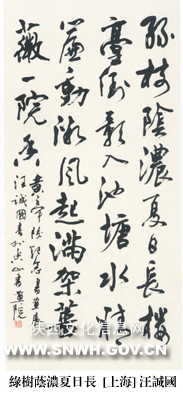 綠樹陰濃夏日長樓
臺倒影入池塘水精
簾動微風起滿架薔
薇一院香
汪誠國書於山書画院
陕西文化信息网
WWW.SNWH.GOV.CN
綠樹蔭濃夏日長 [上海] 汪誠國